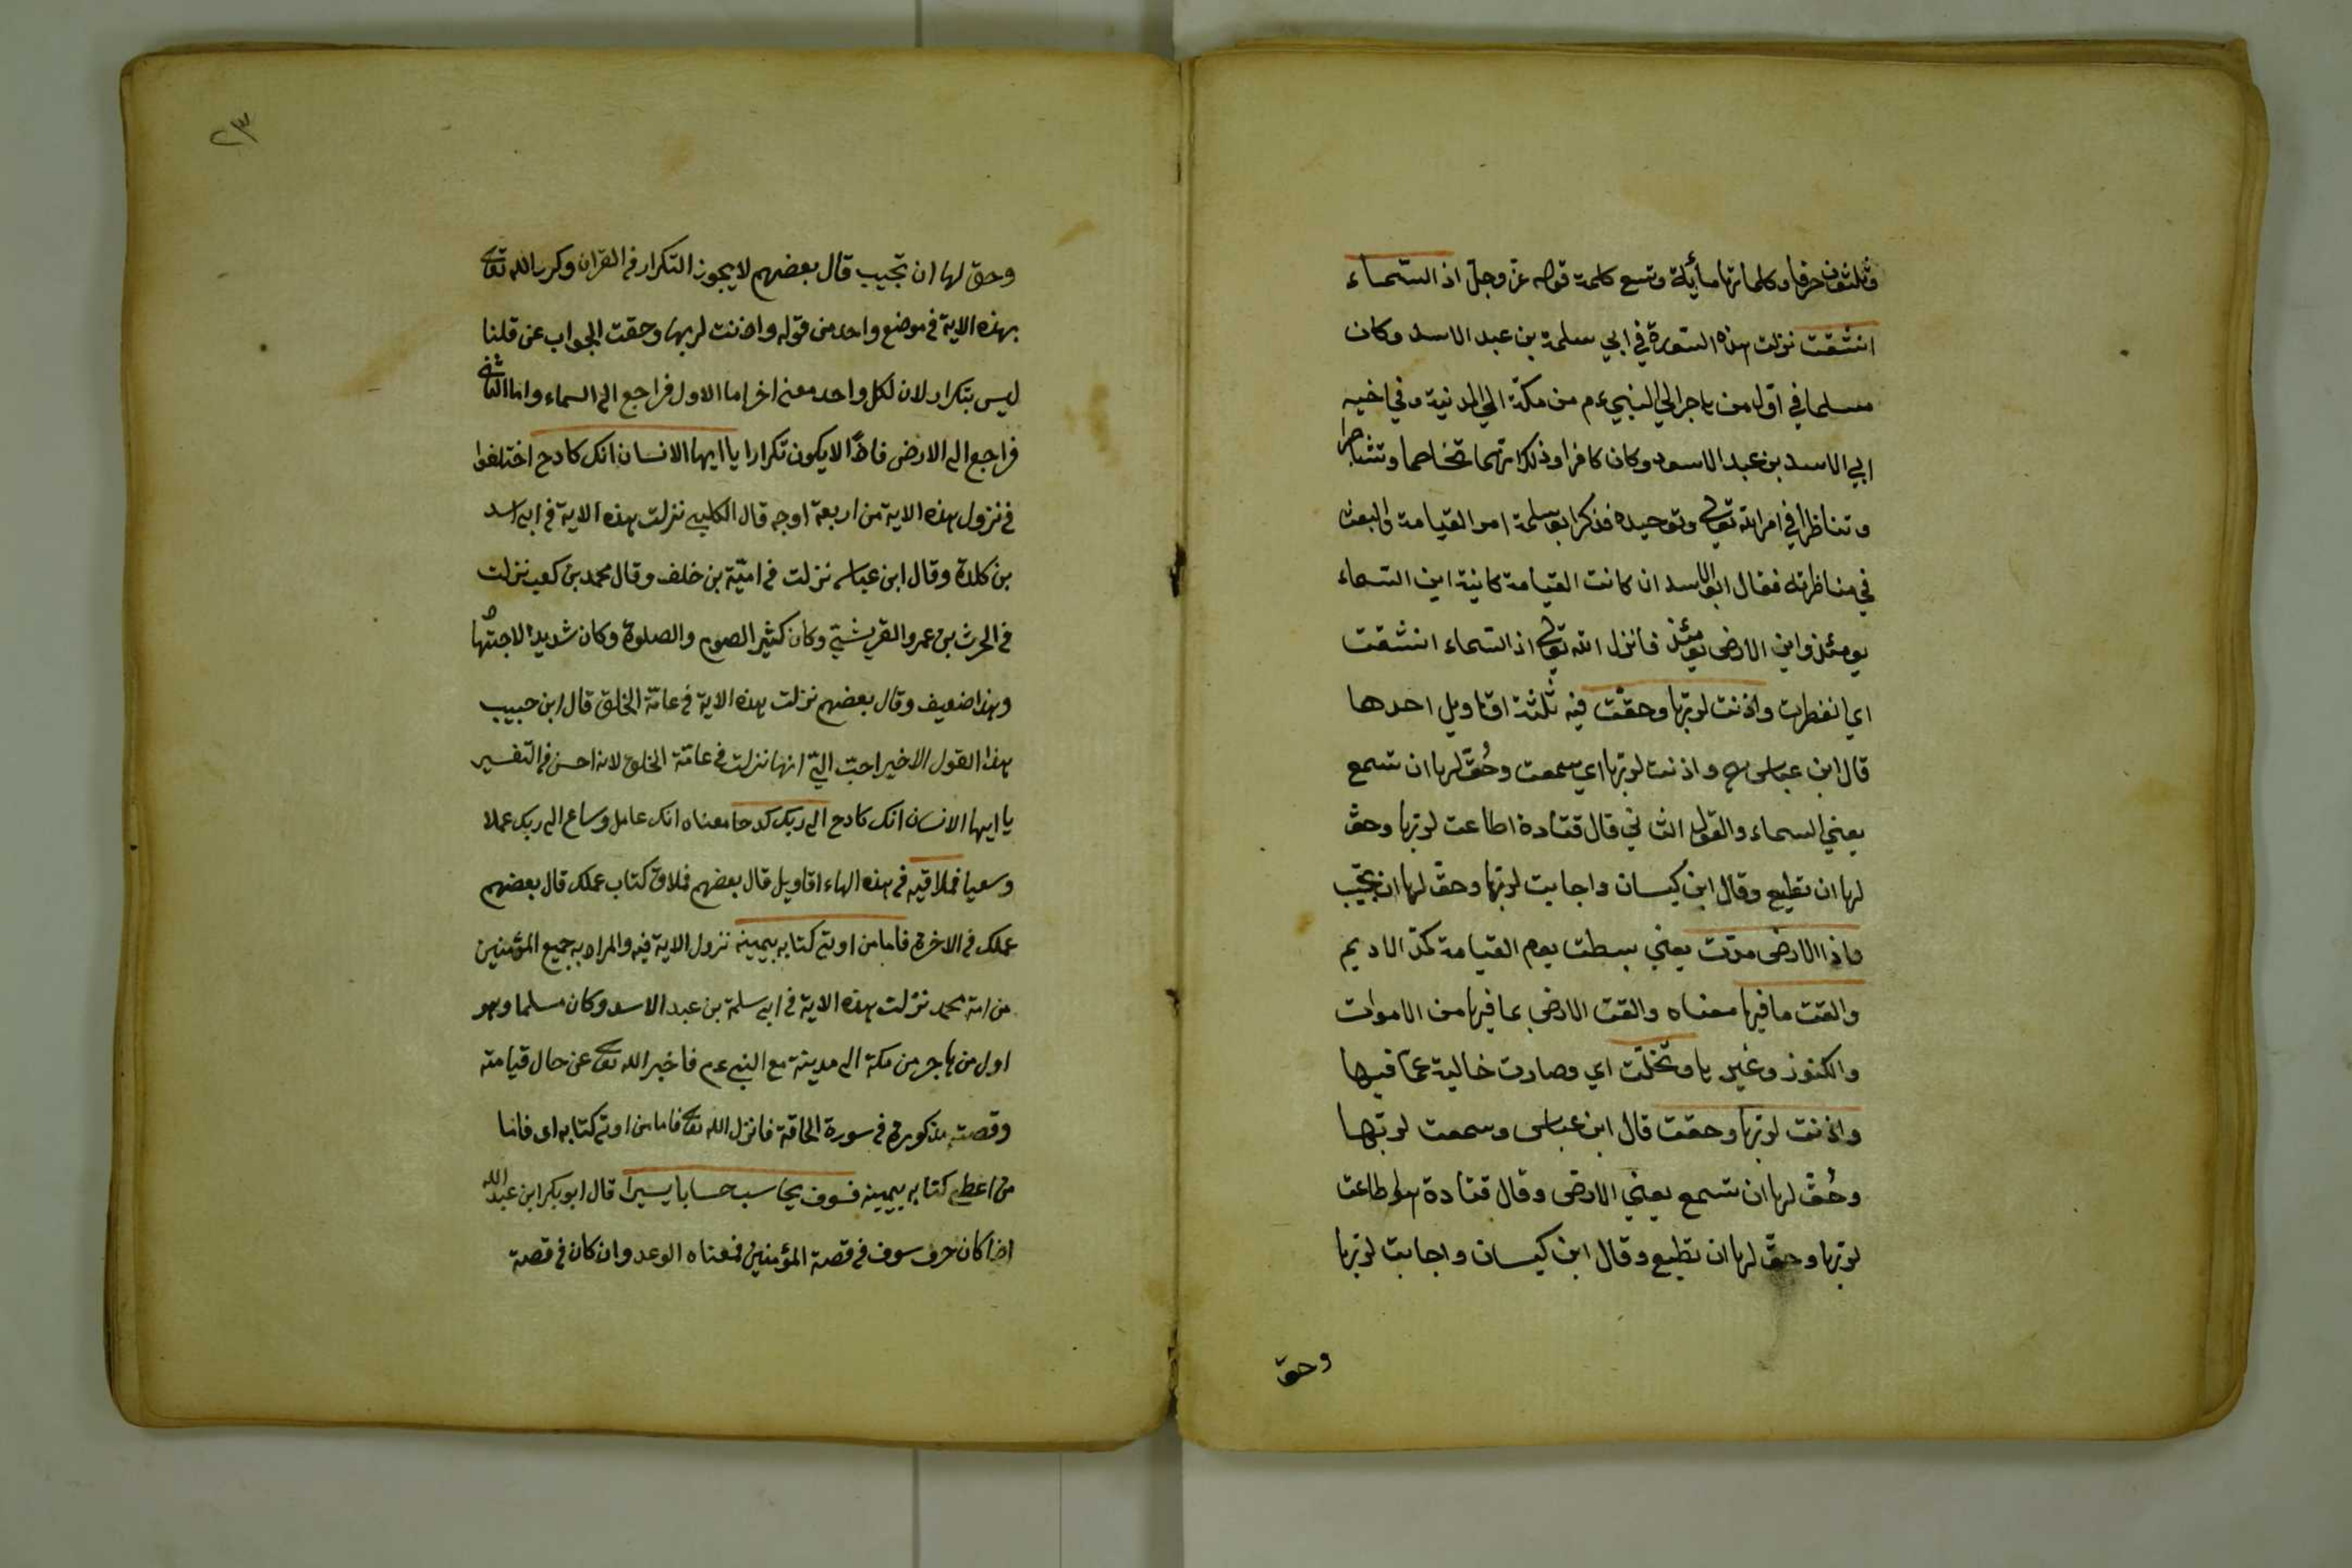 وثلثون حرفا وكلماتها مأية وتسع كلمة قوله عز وجل اذ السّماء
انشقت نزلت هذه السّورة في ابي سلمة بن عبد الاسد وكان
مسلما في اوّل من هاجر الي النبي ءم من مكّة الي المدنية وفي اخيه
ابي الاسد بن عبد الاسود وكان كافرا وذلك انّهما تخاصما وتشاجرا
وتناظرا في امر الله تعالي وتوحيده فذكر ابو سلمة امر القيامة والبعث
في مناظرته فقال ابو الاسد ان كانت القيامة كانية اين السّماء
يومئذ واين الارض يومئذ فانزل الله تعالي اذ السّماء انشقت
اي انفطرت واذنت لربّها وحقّت فيه ثلثة اقاويل احدها
قال ابن عباس واذنت لربّها اي سمعت وحُقّ لها ان تسمع
يعني السماء والقول الثاني قال قتادة اطاعت لربّها وحقّ
لها ان تطيع وقال ابن كيسان واجابت لربّها وحقّ لها ان تجيب
واذا الارض مدّت يعني بسطت يوم القيامة كمدّ الاديم
والقت ما فيها معناه والقت الارض بما فيها من الاموات
والكنوز وغيرها وتخلّت اي وصارت خالية عمّا فيها
واذنت لربّها وحقت قال ابن عباس وسمعت لربّها
وحُقّ لها ان تسمع يعني الارض وقال قتادة اطاعت
لربّها وحقّ لها ان تطيع وقال ابن كيسان واجابت لربّها
وحقّ
٢٣
وحق لها ان تجيب قال بعضهم لا يجوز التكرار في القران وكرر الله تعالى
بهذه الاية في موضع واحد من قوله واذنت لربها وحقت الجواب عن قلنا
ليس بتكرار لان لكل واحد معنى اخر اما الاول فراجع الى السماء واما الثاني
فراجع الى الارض فاذًا لا يكون تكرارا يا ايها الانسان انك كادح اختلفوا
في نزول هذه الاية من اربعة اوجه قال الكلبي نزلت هذه الاية في ابي اسد
بن كلدة وقال ابن عباس نزلت في اميّة بن خلف وقال محمد بن كعب نزلت
في الحرث بن عمرو القريشيّ وكان كثير الصوم والصلوة وكان شديد الاجتها
وهذا ضعيف وقال بعضهم نزلت هذه الاية في عامّة الخلق قال ابن حبيب
هذا القول الاخير احبّ اليّ انها نزلت في عامّة الخلق لانه احسن في التفسير
يا ايها الانسان انك كادح الى ربك كدحا معناه انك عامل وساع الى ربك عملا
وسعيا فملاقيه في هذه الهاء اقاويل قال بعضهم فملاق كتاب عملك قال بعضهم
عملك في الاخرة فاما من اوتي كتابه بيمينه نزول الاية فيه والمراد به جميع المؤمنين
من امة محمد نزلت هذه الاية في ابي سلمة بن عبد الاسد وكان مسلما وهو
اول من هاجر من مكة الى مدينة مع النبي ءم فاخبر الله تعالى عن حال قيامته
وقصته مذكورة في سورة الحاقة فانزل الله تعالى فاما من اوتي كتابه اى فاما
من اعطى كتابه بيمينه فسوف يحاسب حسابا يسيرا قال ابو بكر ابن عبد الله
اذا كان حرف سوف في قصة المؤمنين فمعناه الوعد وان كان في قصة